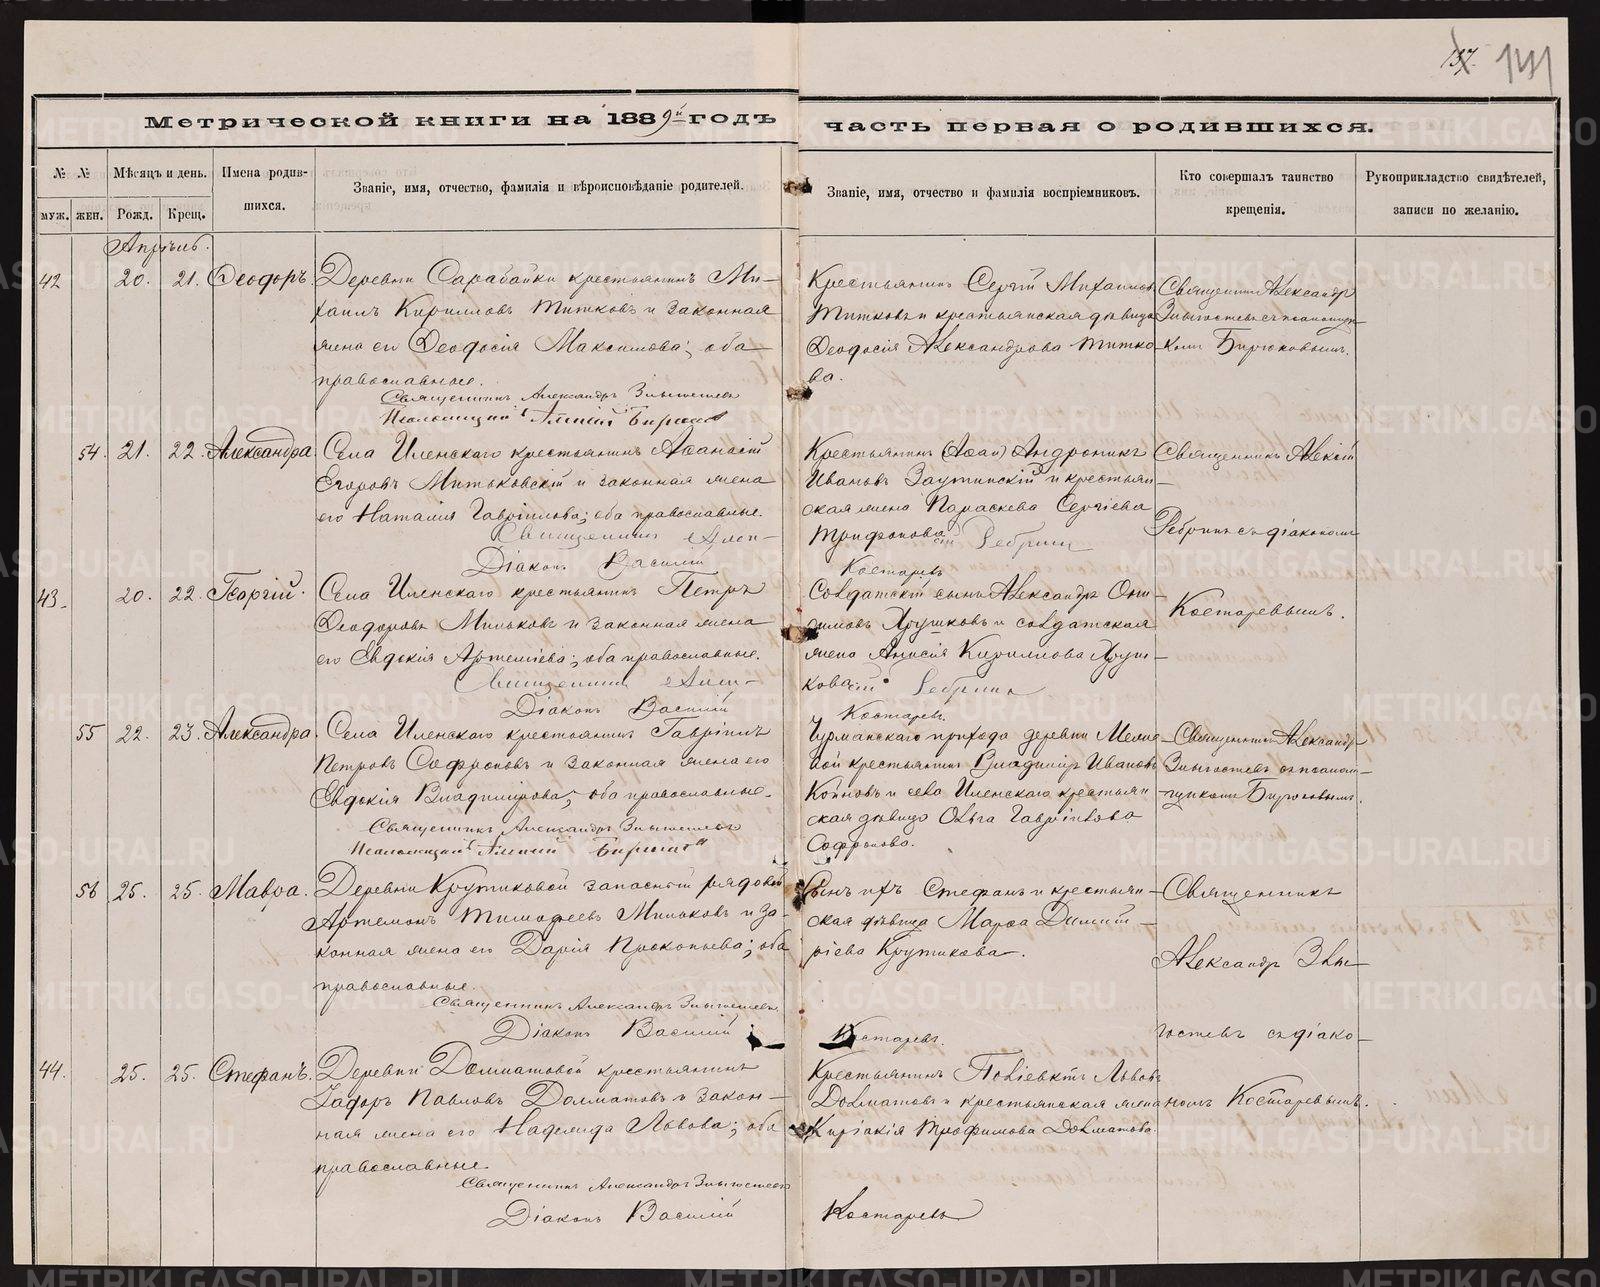 137. 141
Метрической книги на 1889й годъ часть первая о родившихся.
№ № Мѣсяцъ и день. Имена родившихся. Званіе, имя, отчество, фамилія и вѣроисповѣданіе родителей. Званіе, имя, отчество и фамилія воспріемниковъ. Кто совершалъ таинство крещенія. Рукоприкладство свидѣтелей, записи по желанію.
муж. жен. Рожд. Крещ.
Апрѣль.
42 20. 21. Ѳеодоръ.
Деревни Сарабайки крестьянинъ Ми-
хаилъ Кирилловъ Титковъ и законная
жена его Ѳеодосія Максимова; оба
православные.
Священникъ Александръ
Псаломщикъ
Крестьянинъ Сергій Михаиловъ
Титковъ и крестьянская дѣвица
Ѳеодосія Александрова Титко-
ва.
Священникъ Александръ
Бирюковымъ.
54. 21. 22. Александра.
Села Иленскаго крестьянинъ Аѳанасій
Егоровъ Митьковскій и законная жена
его Наталія Гавріилова; оба православные.
Священникъ Алек-
Діаконъ Василій
Крестьянинъ Андроникъ
Ивановъ Заутинскій и крестьян-
ская жена Параскева Сергіева
Трифонова
Ребринъ
Костаревъ
Священникъ Алексій
Ребринъ съ діакономъ
43. 20. 22. Георгій.
Села Иленскаго крестьянинъ Петръ
Ѳеодоровъ Миньковъ и законная жена
его Евдокія Артеміева; оба православные.
Священникъ Алек-
Діаконъ Василій
Солдатскій сынъ Александръ Они-
симовъ Хрушковъ и солдатская
жена Анисія Кириллова Хруш-
кова
Ребринъ
Костаревъ.
Костаревымъ.
55 22. 23. Александра.
Села Иленскаго крестьянинъ Гавріилъ
Петровъ Софроновъ и законная жена его
Евдокія Владимірова; оба православные.
Священникъ Александръ
Псаломщикъ
крестьянинъ Владиміръ Ивановъ
и села Иленскаго крестьян-
ская дѣвица Ольга Гавріилова
Софронова.
Священникъ Александръ
Бирюковымъ.
56 25. 25. Мавра.
Деревни Крутиковой запасный рядовой
Артемонъ Тимофеевъ Миньковъ и за-
конная жена его Дарія Прокопьева; оба
православные.
Священникъ Александръ
Діаконъ Василій
Сынъ ихъ Стефанъ и крестьян-
ская дѣвица Марѳа Димит-
ріева Крутикова.
Костаревъ.
Священникъ
Александръ Злы-
гостевъ съ діако-
44. 25. 25. Стефанъ.
Деревни Долматовой крестьянинъ
Павловъ Долматовъ и закон-
ная жена его Надежда Львова; оба
православные.
Священникъ Александръ
Діаконъ Василій
Крестьянинъ Поліевктъ Львовъ
Долматовъ и крестьянская жена
Киріакія Трофимова Долматова.
Костаревъ
номъ Костаревымъ.
METRIKI.GASO-URAL.RU